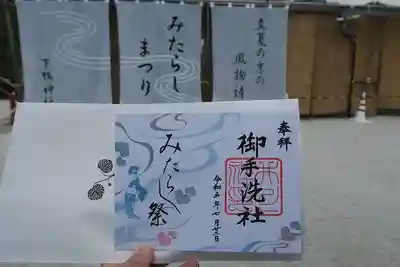 真夏の京の
風物詩
みたらし
まつり
下鴨神社
奉拝
御手洗社
令和五年七月廿三日
みたらし祭